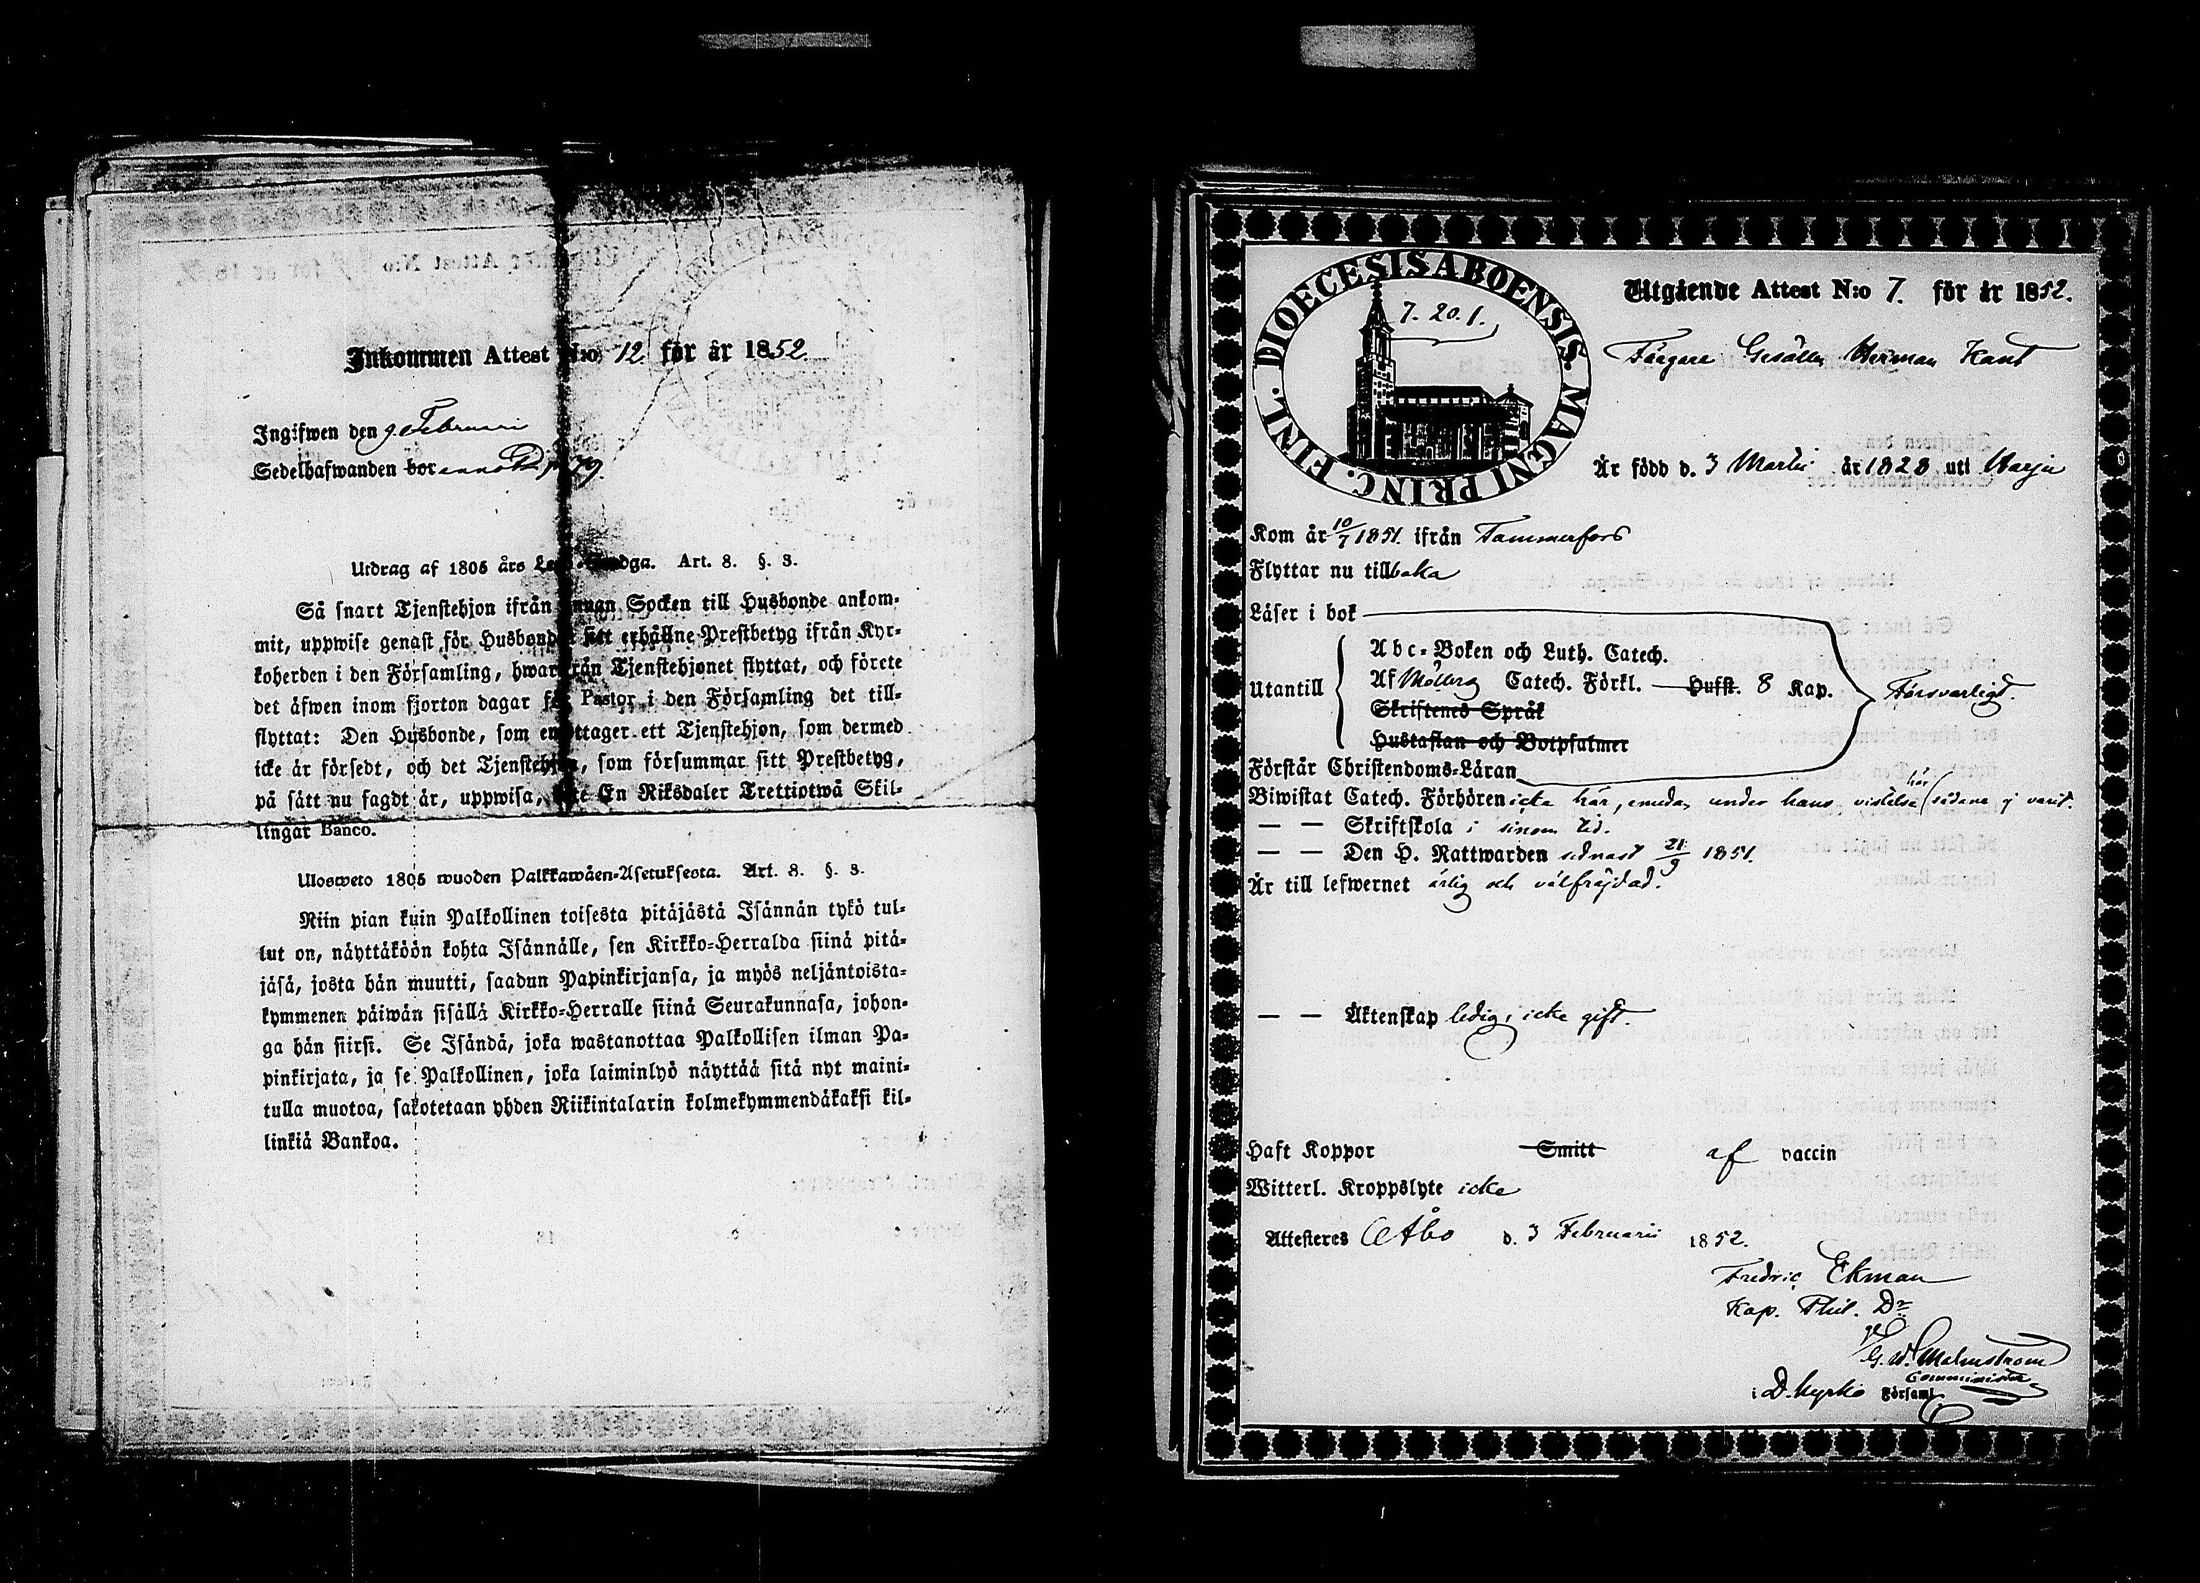 Inkommen Attest N:o 12 för år 1852.
Ingifwen den 9 Februarii
Sedelhafwanden bor
Utdrag af 1805 års Lego-Stadga. Art. 8. §. 3.
Så snart Tjenstehjon ifrån annan Socken till Husbonde ankom-
mit, uppwise genast för Husbonden sitt erhållne Prestbetyg ifrån Kyr-
koherden i den Församling, hwarifrån Tjenstehjonet flyttat, och förete
det äfwen inom fjorton dagar för Pastor i den Församling det till-
flyttat: Den Husbonde, som emottager ett Tjenstehjon, som dermed
icke är försedt, och det Tjenstehjon, som försummar sitt Prestbetyg,
på sätt nu sagdt är, uppwisa, böte En Riksdaler Trettiotwå Skil-
lingar Banco.
Ulosweto 1805 wuoden Palkkawäen-Asetuksesta. Art. 8. §. 3.
Niin pian kuin Palkollinen toisesta pitäjästä Isännän tykö tul-
lut on, näyttäköön kohta Isännälle, sen Kirkko-Herralda siinä pitä-
jäsä, josta hän muutti, saadun Papinkirjansa, ja myös neljäntoista-
kymmenen päiwän sisällä Kirkko-Herralle siinä Seurakunnasa, johon-
ga hän siirsi. Se Isändä, joka wastanottaa Palkollisen ilman Pa-
pinkirjata, ja se Palkollinen, joka laiminlyö näyttää sitä nyt maini-
tulla muotoa, sakotetaan yhden Riikintalarin kolmekymmendäkaksi kil-
linkiä Bankoa.
DIOECESIS ABOENSIS. MAGNI PRINC. FINL.
7. 20. 1.
Utgående Attest N:o 7. för år 1852.
Färgare Gesällen Herman Kant
Är född d. 3 Martii år 1828 uti Harju
Kom år 10/7 1851. ifrån Tammerfors
Flyttar nu tillbaka
Läser i bok
Abc-Boken och Luth. Catech.
Utantill Af Möllers Catech. Förkl. Hufst. 8 Kap. Försvarligt.
Skriftenes Språk
Hustaflan och Botpsalmer
Förstår Christendoms-Läran
Biwistat Catech. Förhören icke här, emedan under hans vistelse här sådana ej varit.
— — Skriftskola i sinom tid.
— — Den H. Nattwarden sednast 21/9 1851.
Är till lefwernet ärlig och välfräjdad.
— — Äktenskap ledig, icke gift.
Haft Koppor Smitt af vaccin
Witterl. Kroppslyte icke
Attesteres Åbo d. 3 Februarii 1852.
Fredric Ekman
Kap. Phil. Dr
G. W. Malmstrom
Comminister
i D. Kyrko Församl.